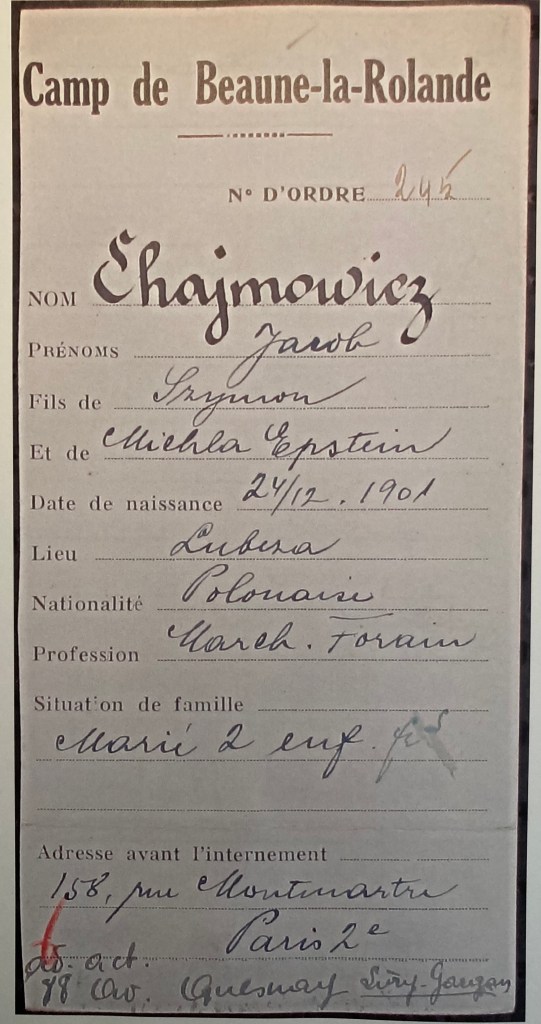 Camp de Beaune-la-Rolande
N° D'ORDRE 245
NOM Chajmowicz
PRÉNOMS Jacob
Fils de Szymon
Et de Michla Epstein
Date de naissance 24/12. 1901
Lieu
Nationalité Polonaise
Profession March. Forain
Situation de famille
Marié 2 enf. frs
Adresse avant l'internement
158, rue Montmartre
Paris 2e
act.
78 Av. Quesnay Livry-Gargan